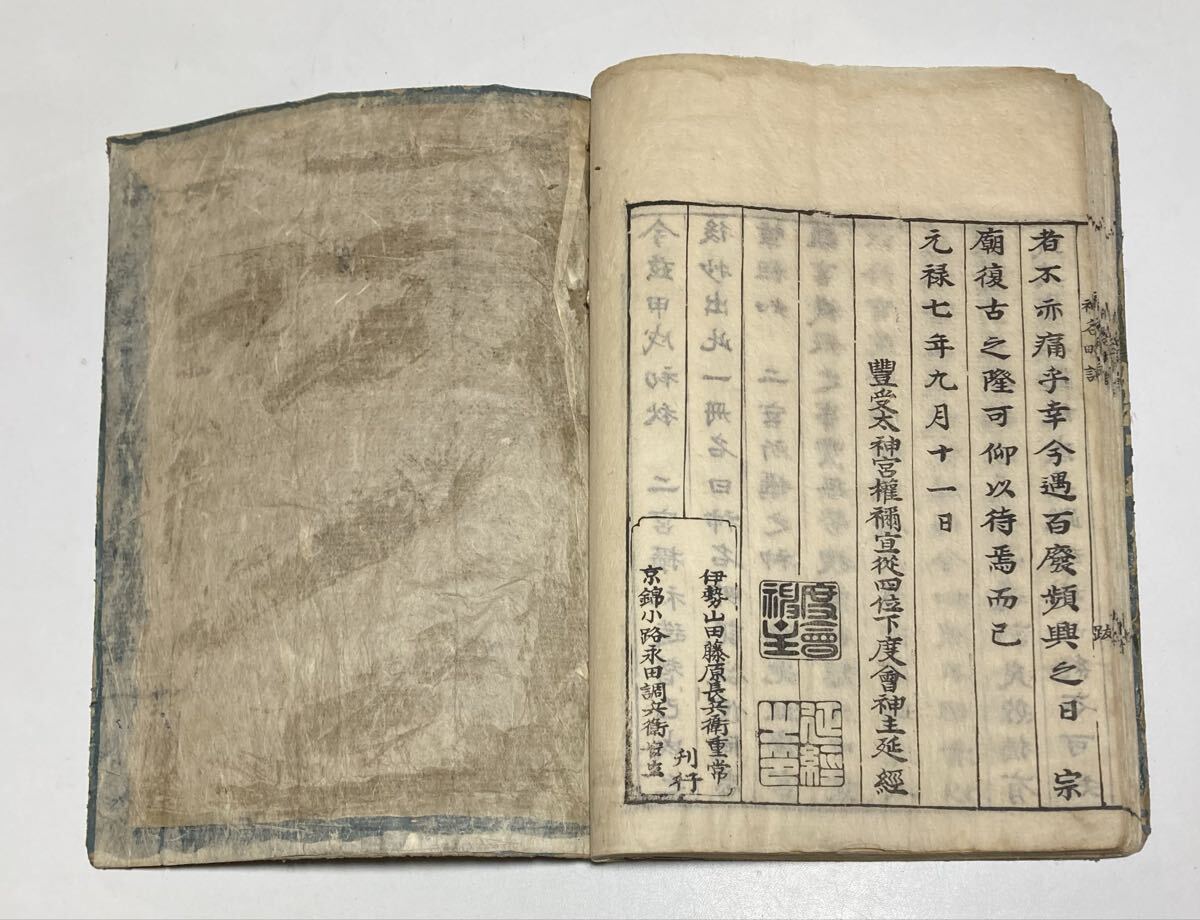 者不亦痛乎幸今遇百廢頻興之日 宗
廟復古之隆可仰以待焉而已
元禄七年九月十一日
豐受太神宮權禰宜從四位下度會神主延經
度會
神主
延經
之印
伊勢山田藤原長兵衛重常
刊行
京錦小路永田調兵衛
跋